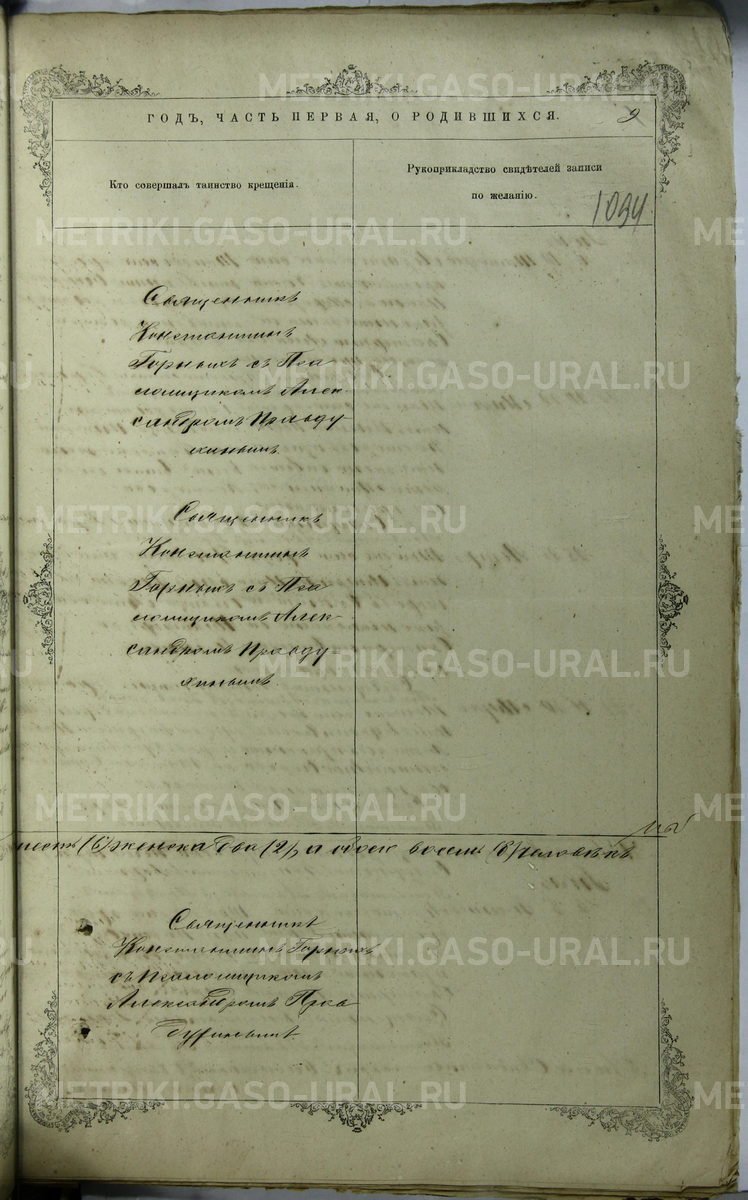 ГОДЪ, ЧАСТЬ ПЕРВАЯ, О РОДИВШИХСЯ.
9
Кто совершалъ таинство крещенія.
Рукоприкладство свидѣтелей записи
по желанію.
1094
Священникъ
Константинъ
Горныхъ съ Пса
ломщикомъ Алек
сандромъ Правду
хинымъ
Священникъ
Константинъ
Горныхъ съ Пса
ломщикомъ Алек-
сандромъ Правду-
хинымъ.
(6) женска два (2), а обоего восемь (8) человѣкъ
Священникъ
Константинъ Горныхъ
съ Псаломщикомъ
Александромъ Пра
METRIKI.GASO-URAL.RU